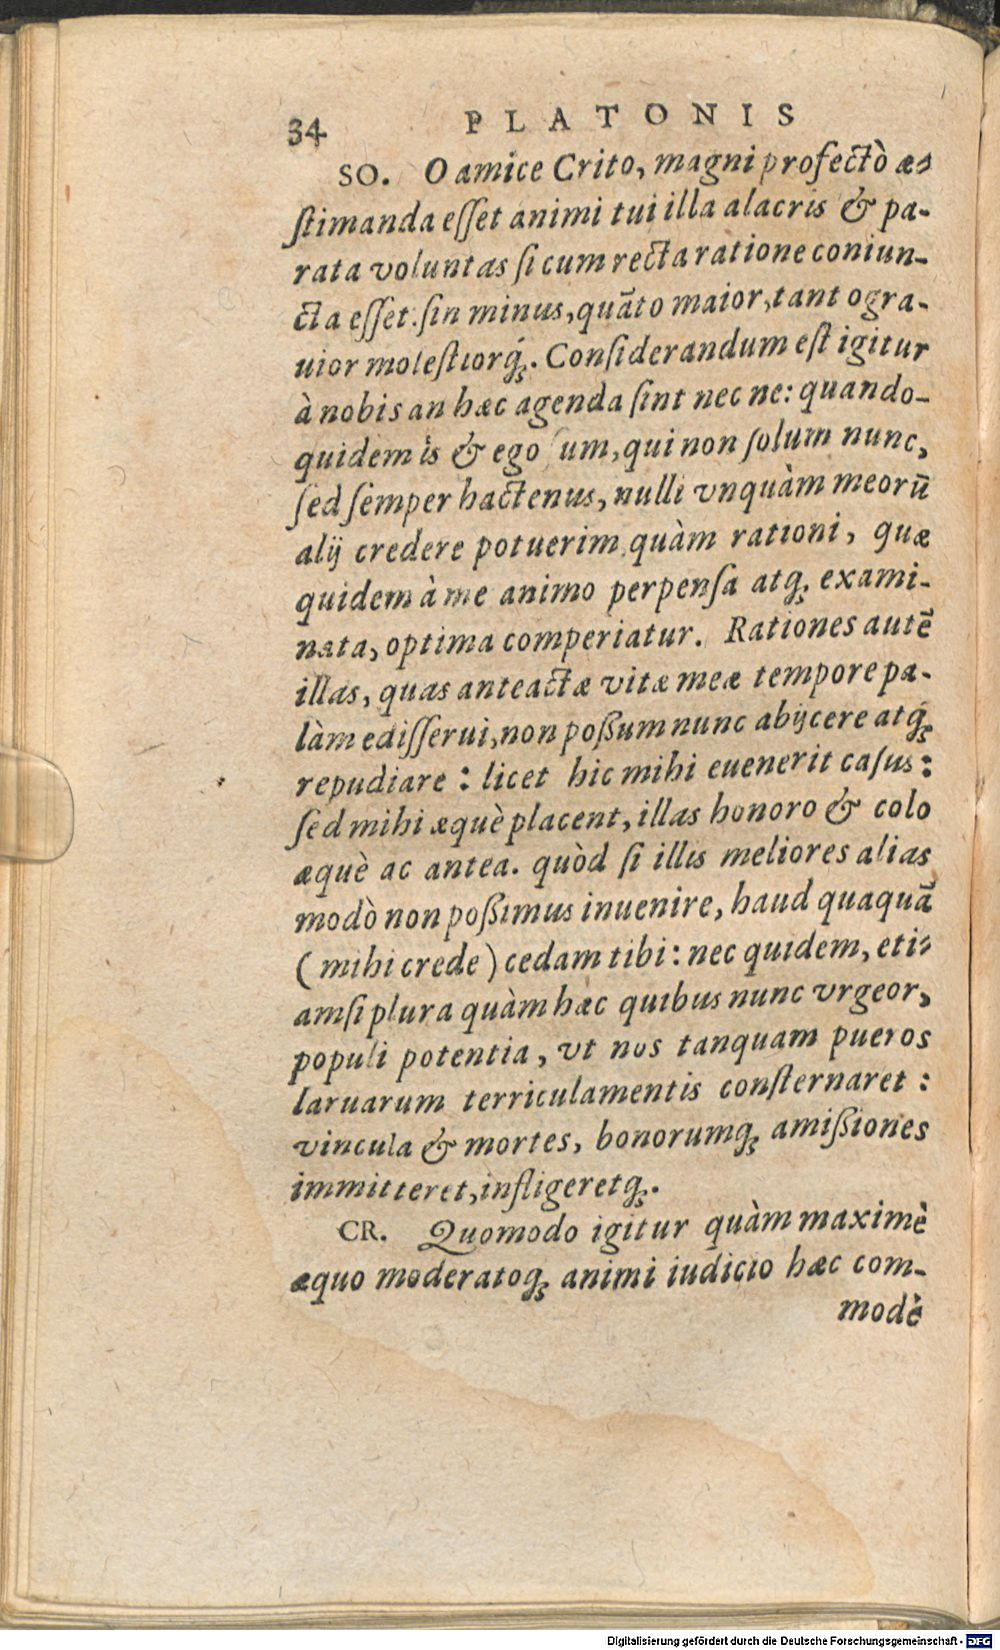 34 PLATONIS
SO. O amice Crito, magni profectò æ-
ſtimanda eſſet animi tui illa alacris & pa-
rata voluntas ſi cum recta ratione coniun-
cta eſſet. ſin minus, quāto maior, tanto gra-
uior moleſtiorq́ꝫ. Conſiderandum eſt igitur
à nobis an hæc agenda ſint nec ne: quando-
quidem is & ego ſum, qui non ſolum nunc,
ſed ſemper hactenus, nulli vnquàm meorū
alij credere potuerim quàm rationi, quæ
quidem à me animo perpenſa atqꝫ exami-
nata, optima comperiatur. Rationes autē
illas, quas anteactæ vitæ meæ tempore pa-
làm ediſſerui, non poßum nunc abijcere atq́ꝫ
repudiare: licet hic mihi euenerit caſus:
ſed mihi æquè placent, illas honoro & colo
æquè ac antea. quòd ſi illis meliores alias
modò non poßimus inuenire, haud quaquā
(mihi crede) cedam tibi: nec quidem, eti-
amſi plura quàm hæc quibus nunc vrgeor,
populi potentia, vt nos tanquam pueros
laruarum terriculamentis conſternaret:
vincula & mortes, bonorumqꝫ amißiones
immitteret, infligeretqꝫ.
CR. Quomodo igitur quàm maximè
æquo moderatoqꝫ animi iudicio hæc com-
modè
Digitalisierung gefördert durch die Deutsche Forschungsgemeinschaft - DFG